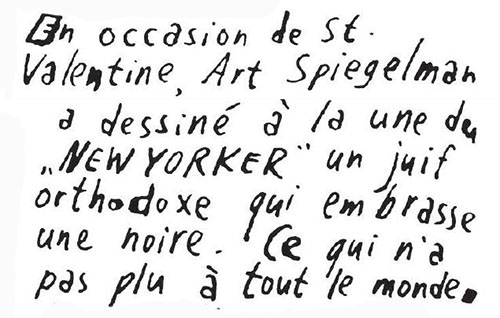 En occasion de St.
Valentine, Art Spiegelman
a dessiné à la une du
„NEW YORKER" un juif
orthodoxe qui embrasse
une noire. Ce qui n'a
pas plu à tout le monde.